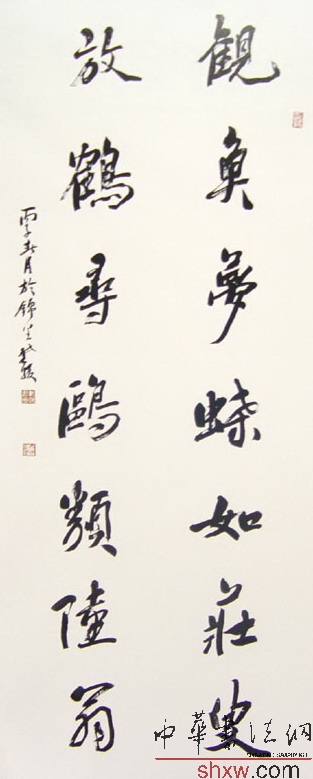 観魚夢蝶如莊叟
放鶴尋鷗類陸翁
丙子春月於錦
中華書法網
shxw.com